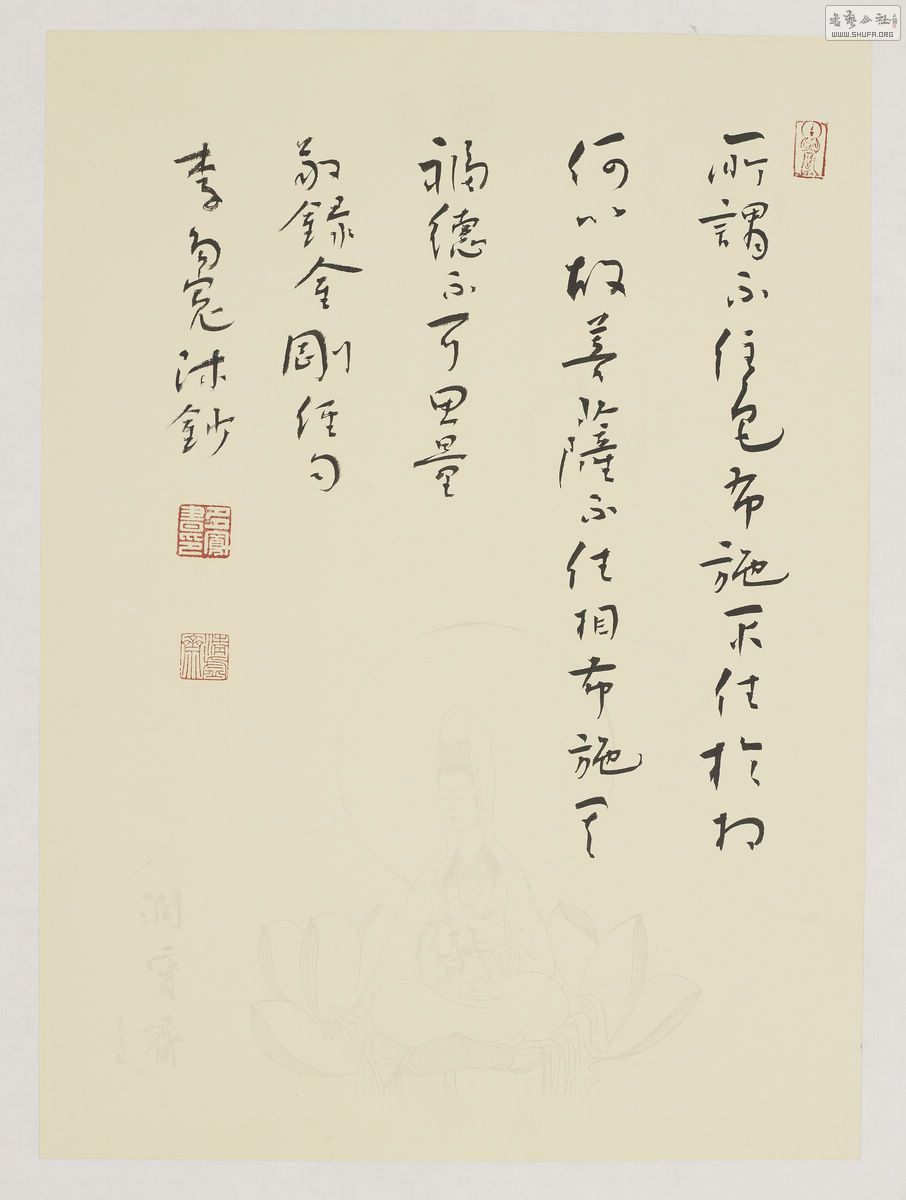 書藝公社
WWW.SHUFA.ORG
所謂不住色布施不住於相
何以故菩薩不住相布施其
福德不可思量
敬錄金剛經句
李沐鈔
潤寶齋